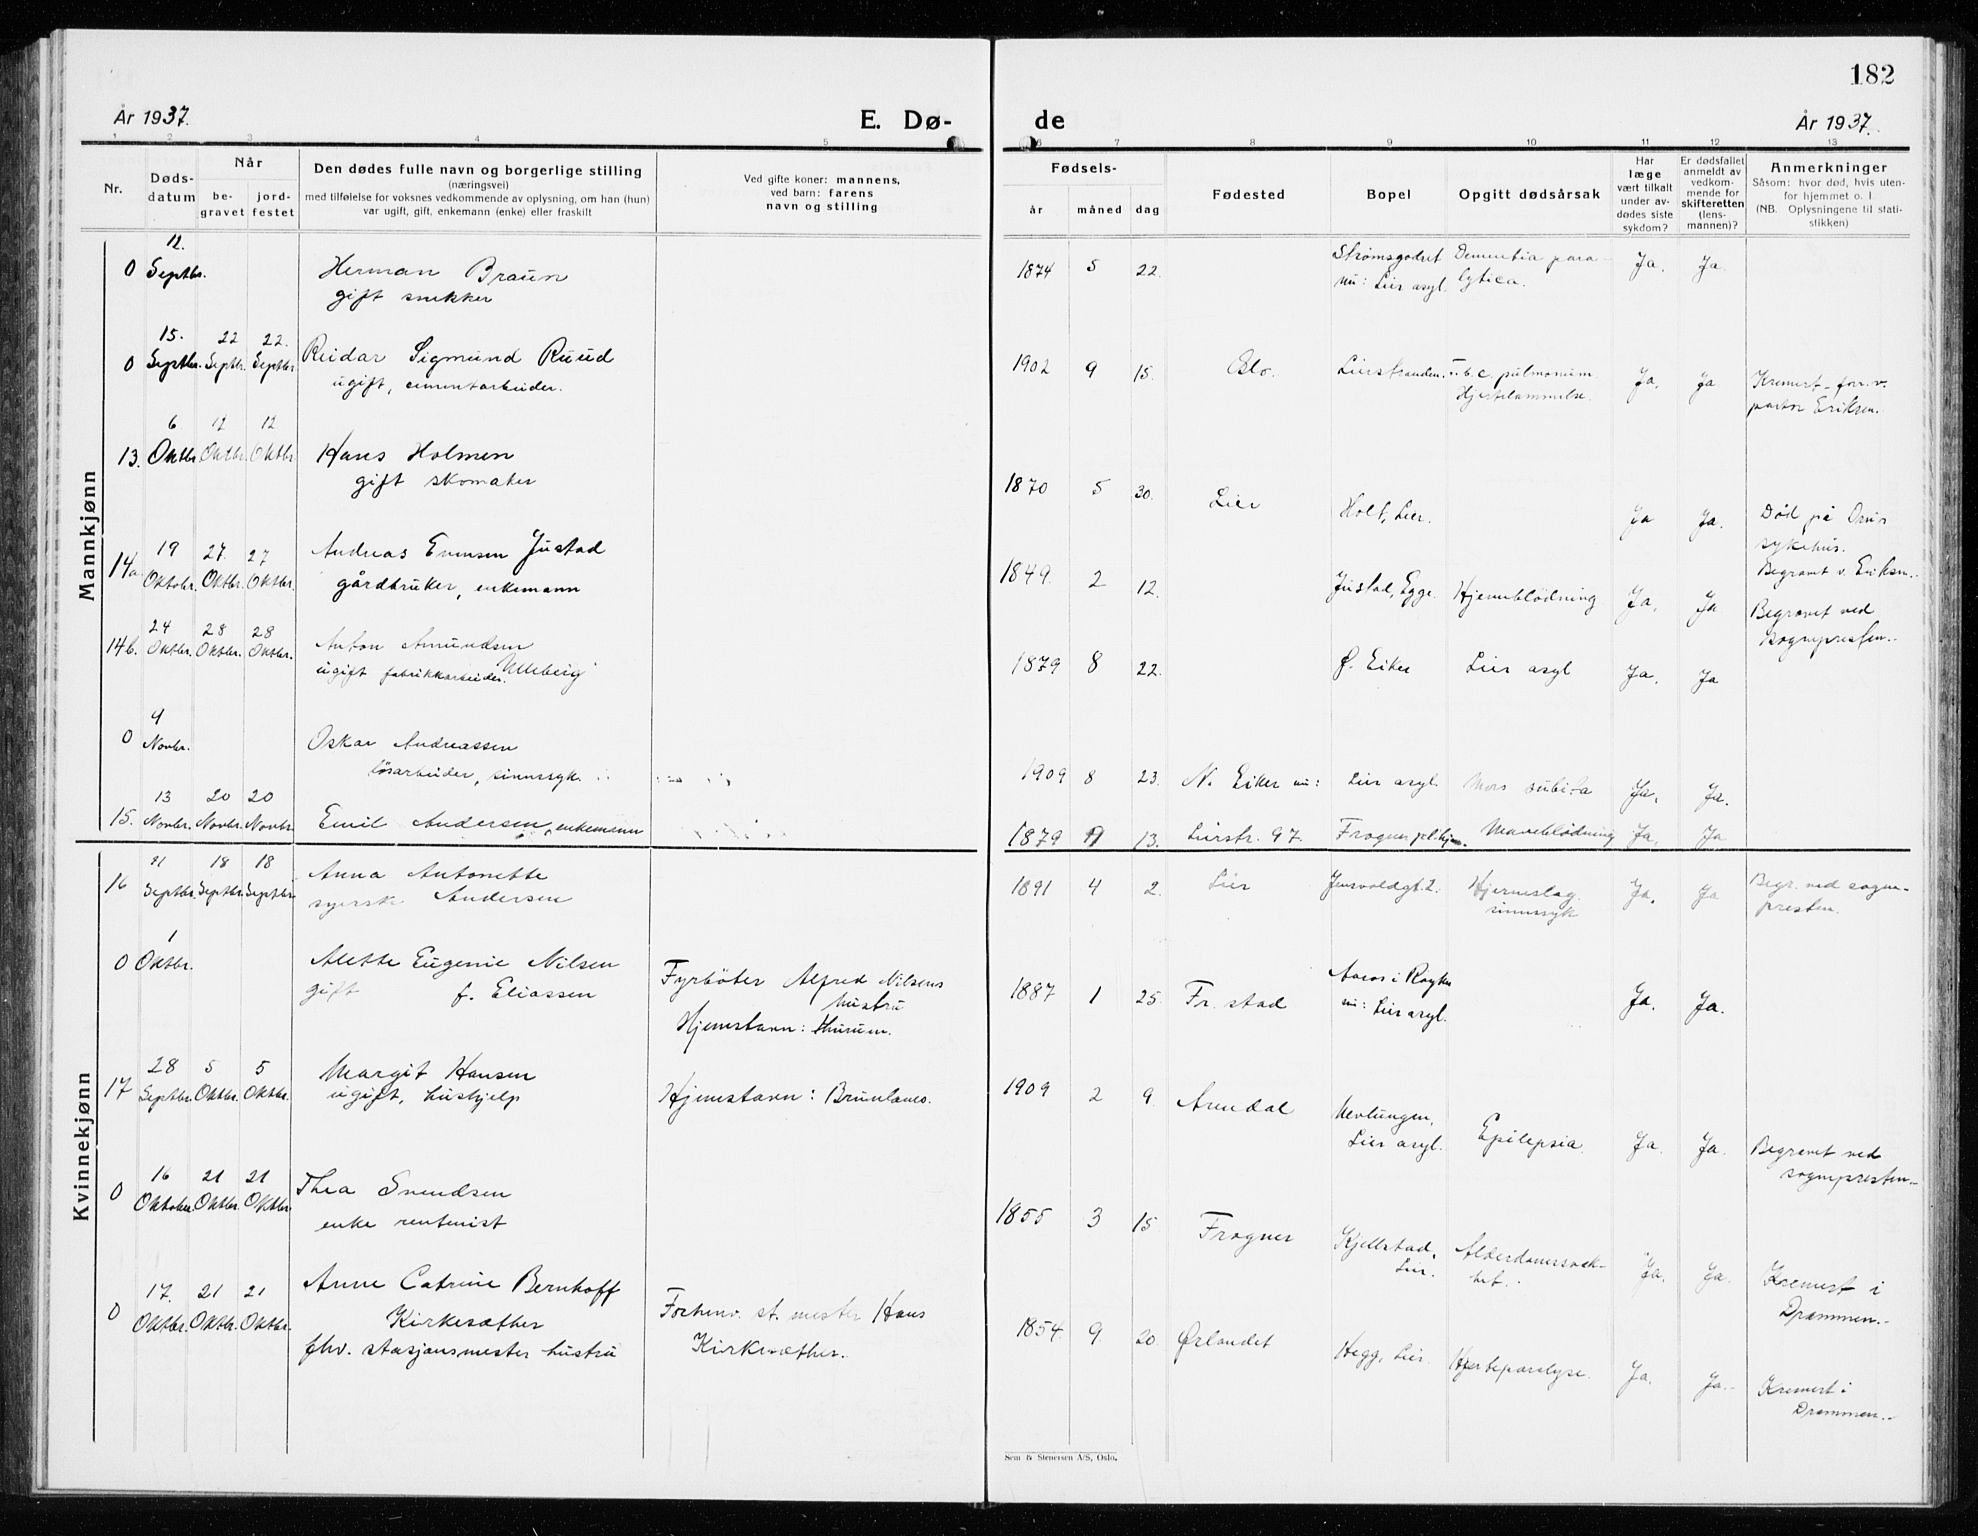 182
År 1937.
E. Dø-
de
År 1937.
1 2 3 4 5
6 7 8 9 10 11 12 13
Nr.
Døds-
datum
Når
be-
gravet
jord-
festet
Den dødes fulle navn og borgerlige stilling
(næringsvei)
med tilføielse for voksnes vedkommende av oplysning, om han (hun)
var ugift, gift, enkemann (enke) eller fraskilt
Ved gifte koner: mannens,
ved barn: farens
navn og stilling
Fødsels-
år
måned
dag
Fødested
Bopel
Opgitt dødsårsak
Har
læge
vært tilkalt
under av-
dødes siste
sykdom?
Er dødsfallet
anmeldt av
vedkom-
mende for
skifteretten
(lens-
mannen)?
Anmerkninger
Såsom: hvor død, hvis uten-
for hjemmet o. l
(NB. Oplysningene til stati-
stikken)
Mannkjønn
0 12. Septbr.
Herman Braun
gift snekker
1874 5 22.
Strømsgodset
nu: Lier asyl.
Dementia para-
lytica.
Ja. Ja.
0 15. Septbr. 22 Septbr. 22. Septbr
Reidar Sigmund Ruud
ugift, cementarbeider.
1902 9 15.
Oslo.
Lierstranden.
T.b.c. pulmonum
Hjertelammelse.
Ja. Ja
Kremert – forr. v.
pastor Eriksen.
13. 6 Oktbr 12 Oktbr. 12 Oktbr
Hans Holmen
gift skomaker
1870 5 30.
Lier
Holt, Lier.
Ja Ja.
Død på
sykehus.
Begravet v. Eriksen.
14a. 19 Oktobr. 27. Oktbr. 27 Oktbr.
Andreas Evensen Justad
gårdbruker, enkemann
1849. 2 12.
Justad, Egge.
Hjerneblödning
Ja, Ja
Begravet ved
sognepresten.
14b. 24 Oktbr. 28 Oktbr. 28 Oktbr.
Anton Amundsen
ugift fabrikkarbeider. Ulleberg
1879 8 22.
Ø. Eiker
Lier asyl
Ja. Ja
0 4 Novbr.
Oskar Andreassen
løsarbeider, sinnssyk.
1909 8 23.
N. Eiker nu:
Lier asyl.
Mors subita
Ja. Ja.
15. 13 Novbr. 20 Novbr. 20 Novbr.
Emil Andersen, enkemann
1879 13.
Lierstr. 97.
Frogner pl.hjem.
Maveblødning
Ja. Ja
Kvinnekjønn
16 11 Septbr. 18 Septbr. 18 Septbr.
Anna Antonette
syerske Andersen
1891 4 2.
Lier
Jensvoldgt. 2.
Hjerneslag
sinnssyk
Ja. Ja
Begr. ved sogne-
presten.
0 1 Oktbr.
Alette Eugenie Nilsen
gift f. Eliassen
Fyrbøter Alfred Nilsens
hustru
Hjemstavn: Hurum.
1887 1 25.
Fr. stad
Aaros i Røyken
nu: Lier asyl.
Ja. Ja.
17 28 Septbr. 5 Oktbr. 5 Oktbr.
Margit Hansen
ugift, hushjelp
Hjemstavn: Brunlanes.
1909 2 9.
Arendal
Nevlungen,
Lier asyl.
Epilepsia
Ja. Ja.
Begravet ved
sognepresten.
0 16 Oktober 21 Oktbr. 21 Oktbr.
Thea Svendsen
enke rentenist
1855 3 15.
Frogner
Kjellstad,
Lier.
Alderdomssvak-
het.
Ja. Ja.
Kremert i
Drammen.
0 17. Oktbr. 21 Oktbr. 21 Oktbr.
Anne Catrine Bernhoff
Kirkesæther
fhv. stasjonsmester hustru
Forhenv. st. mester Hans
Kirkesæther.
1854. 9 20.
Ørlandet
Hegg, Lier.
Hjerteparalyse.
Ja. Ja.
Kremert i
Drammen.
Sem & Stenersen A/S, Oslo.